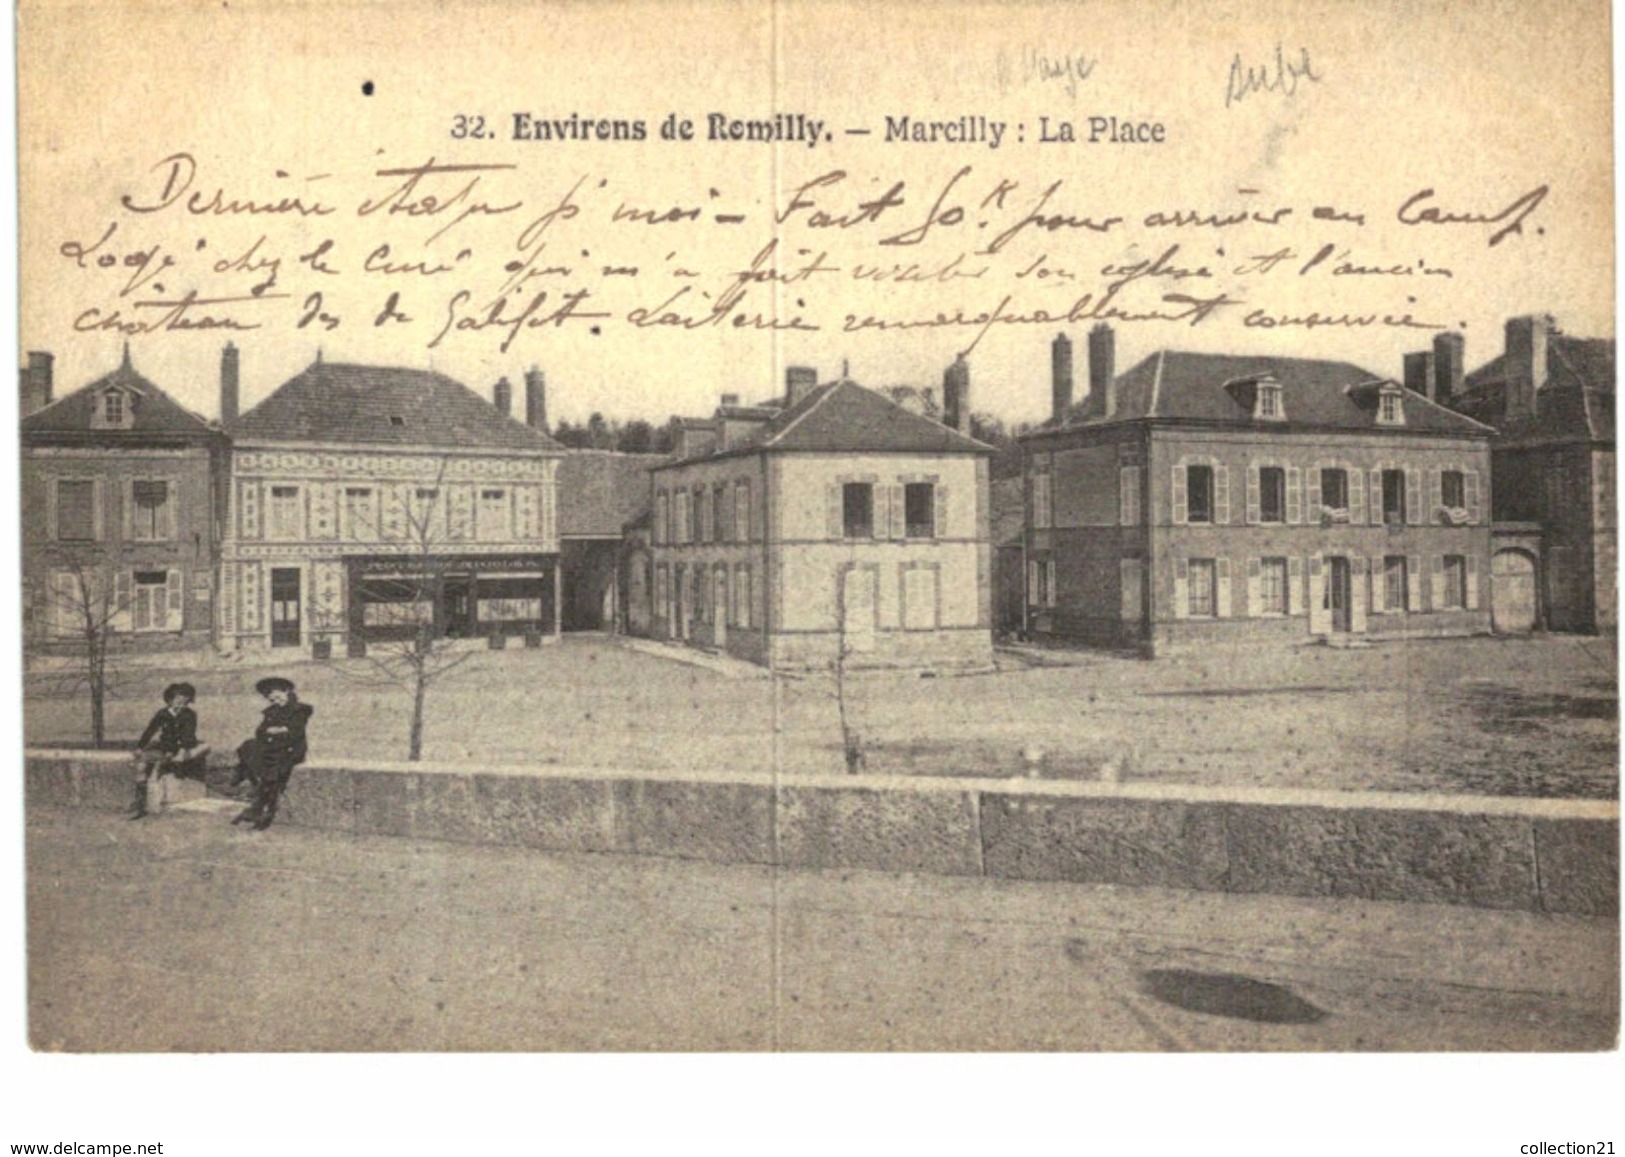 Aube
32. Environs de Romilly. — Marcilly : La Place
Dernière étape pr moi – Fait 50k. pour arriver au Camp.
Logé chez le Curé qui m'a fait visiter son église et l'ancien
château des de Galifet. Laiterie remarquablement conservée.
www.delcampe.net
collection21